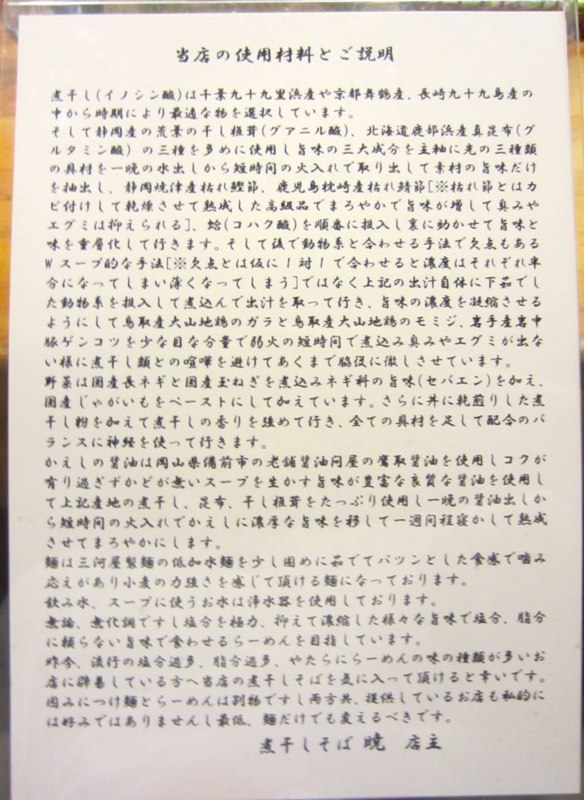 当店の使用材料とご説明
煮干し(イノシン酸)は千葉九十九里浜産や京都舞鶴産、長崎九十九島産の
中から時期により最適な物を選択しています。
そして静岡産の荒葉の干し椎茸(グアニル酸)、北海道鹿部浜産真昆布(グ
ルタミン酸)の三種を多めに使用し旨味の三大成分を主軸に先の三種類
の具材を一晩の水出しから短時間の火入れで取り出して素材の旨味だけ
を抽出し、静岡焼津産枯れ鰹節、鹿児島枕崎産枯れ鯖節[※枯れ節とはカ
ビ付けして乾燥させて熟成した高級品でまろやかで旨味が増して臭みや
エグミは抑えられる]、蛤(コハク酸)を順番に投入し裏に効かせて旨味と
味を重層化して行きます。そして後で動物系と合わせる手法で欠点もある
Wスープ的な手法[※欠点とは仮に1対1で合わせると濃度はそれぞれ半
分になってしまい薄くなってしまう]ではなく上記の出汁自体に下茹でし
た動物系を投入して煮込んで出汁を取って行き、旨味の濃度を凝縮させる
ようにして鳥取産大山地鶏のガラと鳥取産大山地鶏のモミジ、岩手産岩中
豚ゲンコツを少な目な分量で弱火の短時間で煮込み臭みやエグミが出な
い様に煮干し類との喧嘩を避けてあくまで脇役に徹しさせています。
野菜は国産長ネギと国産玉ねぎを煮込みネギ科の旨味(セバエン)を加え、
国産じゃがいもをペーストにして加えています。さらに丼に乾煎りした煮
干し粉を加えて煮干しの香りを強めて行き、全ての具材を足して配合のバ
ランスに神経を使って行きます。
かえしの醤油は岡山県備前市の老舗醤油問屋の鷹取醤油を使用しコクが
有り過ぎずかどが無いスープを生かす旨味が豊富な良質な醤油を使用し
て上記産地の煮干し、昆布、干し椎茸をたっぷり使用し一晩の醤油出しか
ら短時間の火入れでかえしに濃厚な旨味を移して一週間程寝かして熟成
させてまろやかにします。
麺は三河屋製麺の低加水麺を少し固めに茹でてパツンとした食感で噛み
応えがあり小麦の力強さを感じて頂ける麺になっております。
飲み水、スープに使うお水は浄水器を使用しております。
無論、無化調ですし塩分を極力、抑えて濃縮した様々な旨味で塩分、脂分
に頼らない旨味で食わせるらーめんを目指しています。
昨今、流行の塩分過多、脂分過多、やたらにらーめんの味の種類が多いお
店に辟易している方へ当店の煮干しそばを気に入って頂けると幸いです。
因みにつけ麺とらーめんは別物ですし両方共、提供しているお店も私的に
は好みではありませんし最低、麺だけでも変えるべきです。
煮干しそば 暁 店主